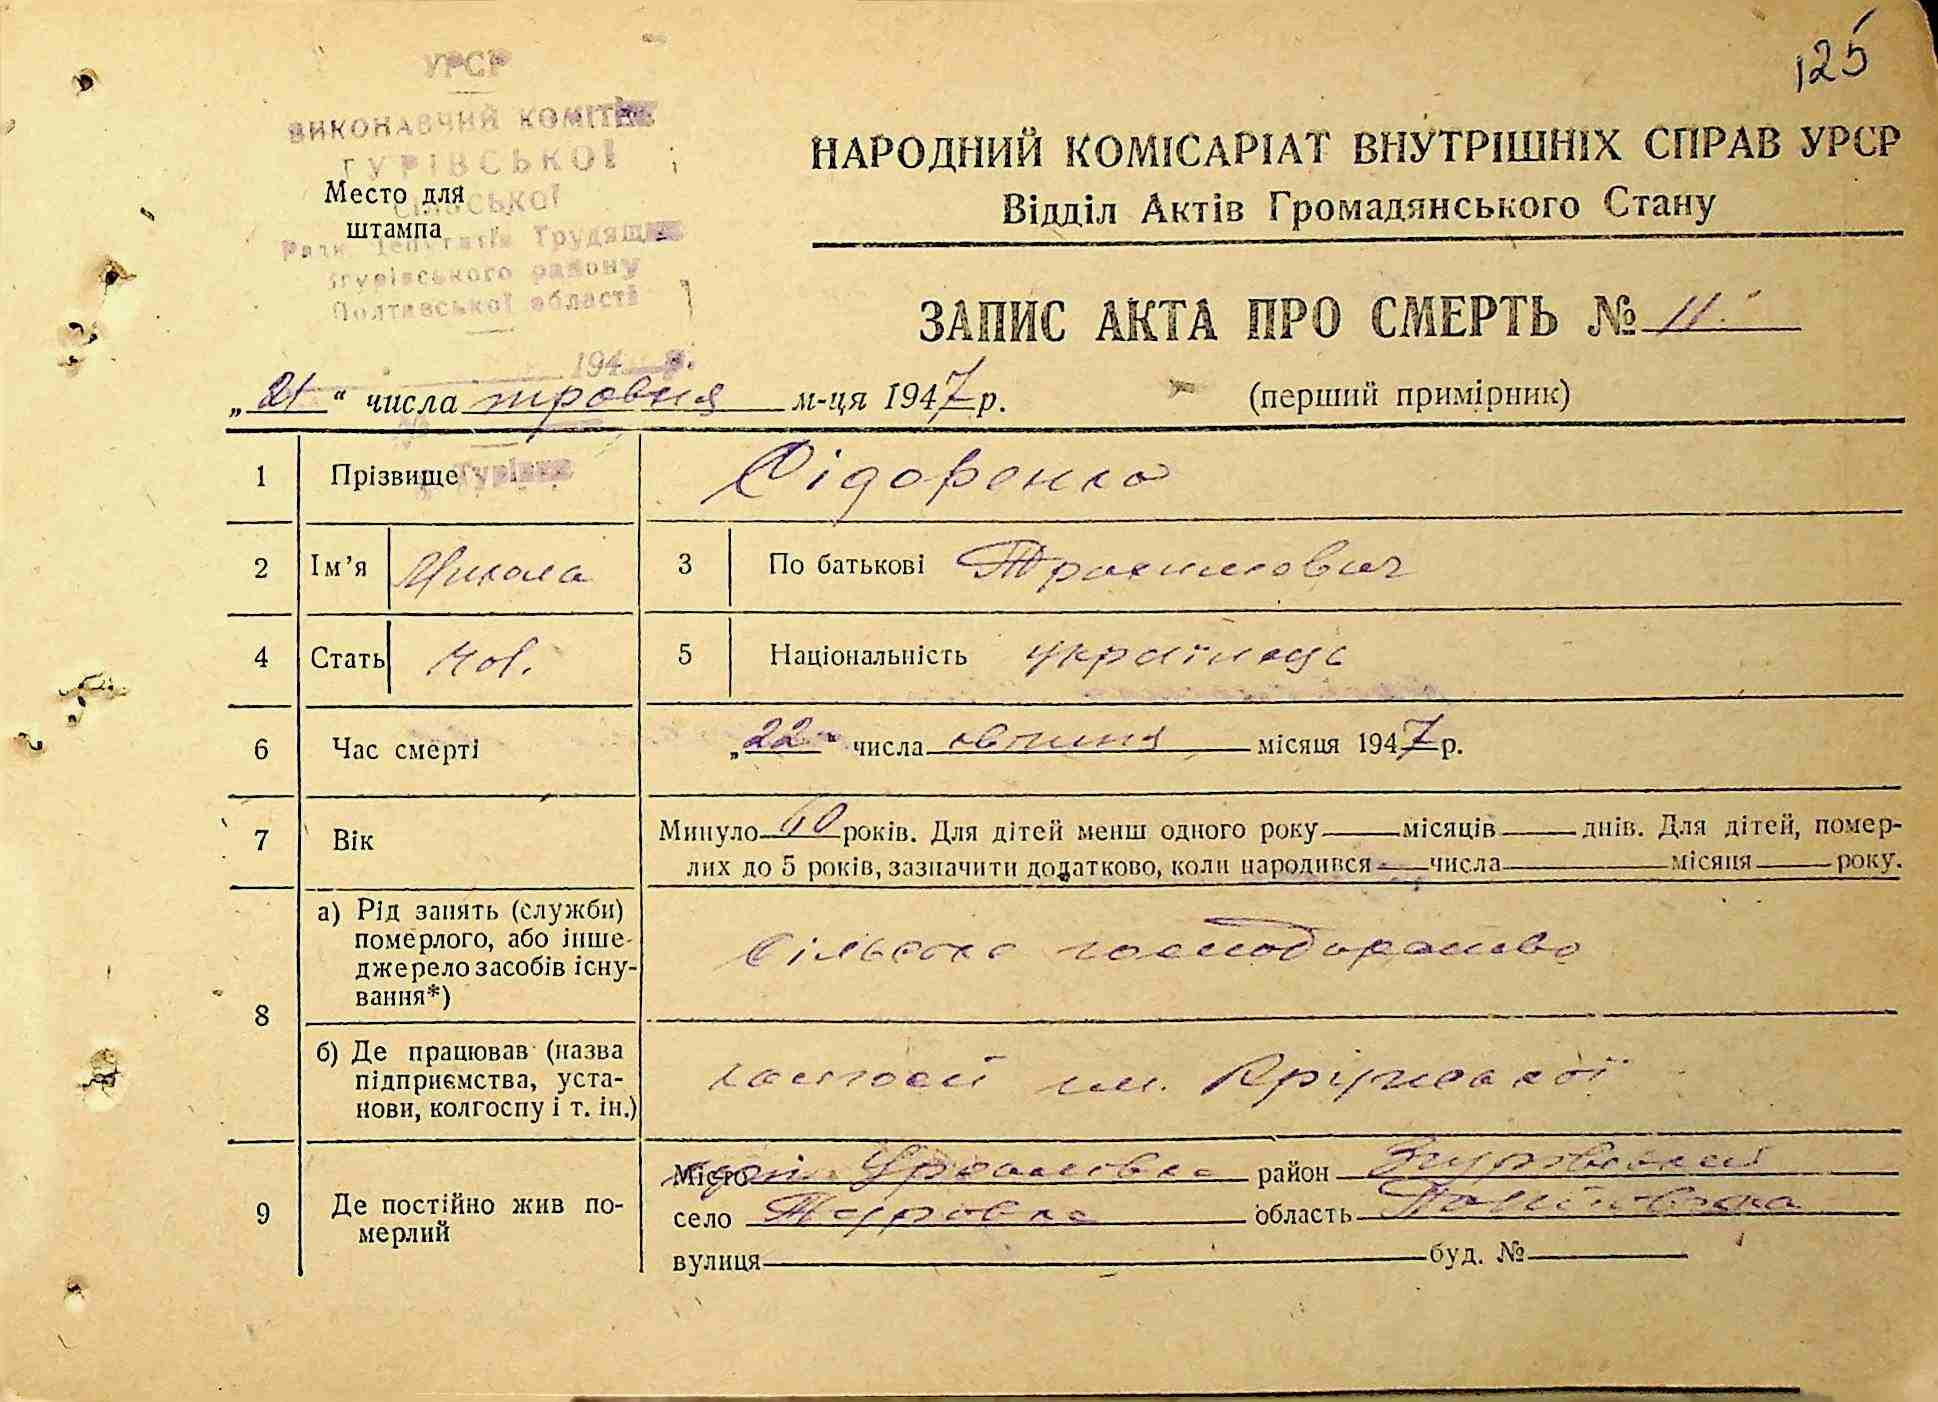 125
УРСР
ВИКОНАВЧИЙ КОМІТЕТ
ТУРІВСЬКОЇ
СІЛЬСЬКОЇ
Ради Депутатів Трудящих
Згурівського району
Полтавської області
194 р.
№
с. Турівка
Место для
штампа
НАРОДНИЙ КОМІСАРІАТ ВНУТРІШНІХ СПРАВ УРСР
Відділ Актів Громадянського Стану
ЗАПИС АКТА ПРО СМЕРТЬ № 11.
„21“ числа травня м-ця 1947 р. (перший примірник)
1 Прізвище Сідоренко
2 Ім’я Микола 3 По батькові Трохимович
4 Стать чол. 5 Національність українець
6 Час смерті „22“ числа місяця 1947 р.
7 Вік Минуло 60 років. Для дітей менш одного року місяців днів. Для дітей, помер-
лих до 5 років, зазначити додатково, коли народився числа місяця року.
8 а) Рід занять (служби)
померлого, або інше
джерело засобів існу-
вання*)
сільське господарство
б) Де працював (назва
підприємства, уста-
нови, колгоспу і т. ін.)
колгосп ім. Крупської
9 Де постійно жив по-
мерлий
Місто район Згурівський
село Турівка область Полтавська
вулиця буд. №